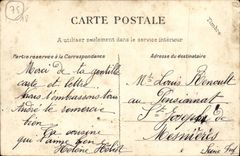 75
CARTE POSTALE
A utiliser seulement dans le service intérieur
Timbre
Partie réservée à la Correspondance
Adresse du destinataire
Merci de ta gentille
carte et lettre
nous t'embrassons tous
André te remercie
bien
qui t'aime bien
Hélène
Mr Louis Renoult
au Pensionnat
St Joseph de
Mesnières
Seine Inf